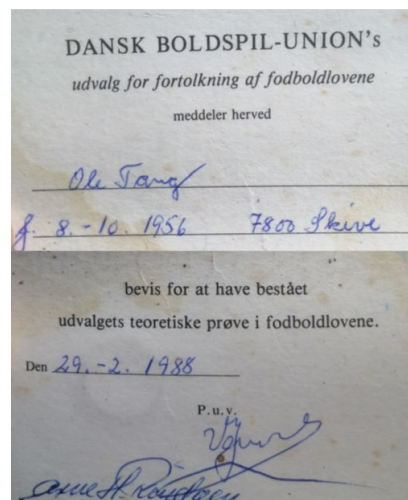 DANSK BOLDSPIL-UNION's
udvalg for fortolkning af fodboldlovene
meddeler herved
Ole Tang
f. 8.-10. 1956 7800 Skive
bevis for at have bestået
udvalgets teoretiske prøve i fodboldlovene.
Den 29.-2. 1988
P.u.v.